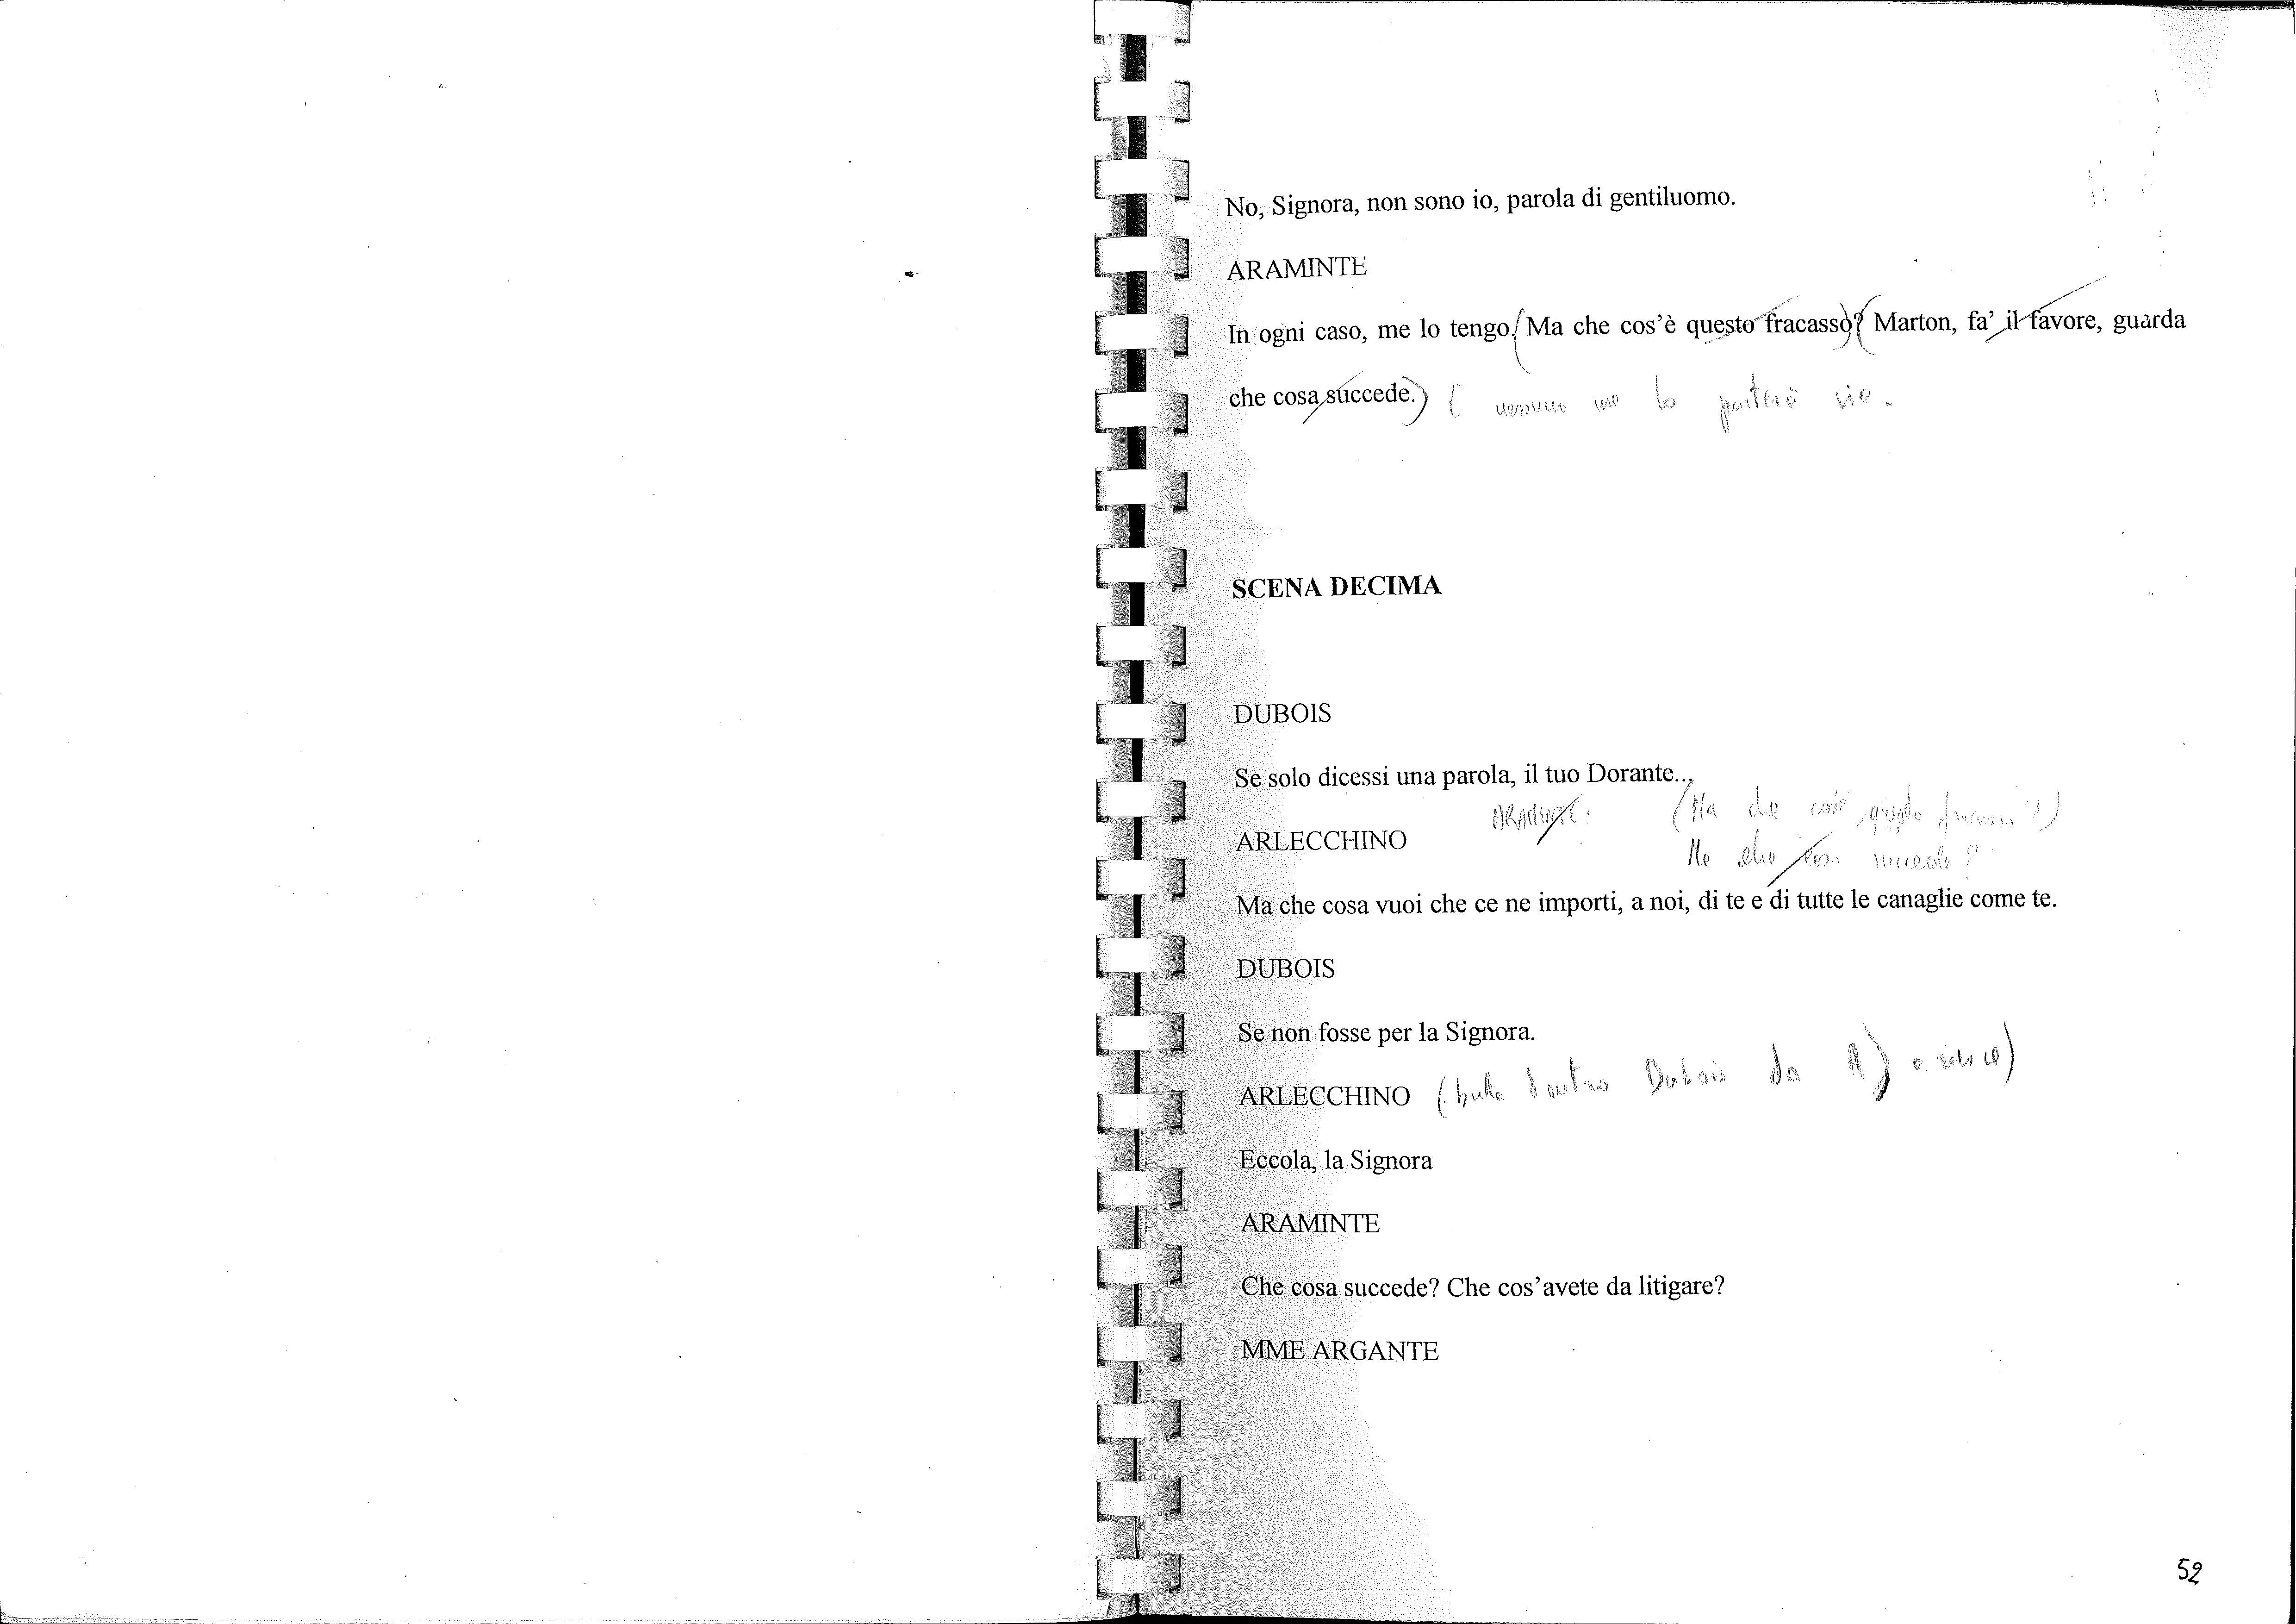 No, Signora, non sono io, parola di gentiluomo.
ARAMINTE
In ogni caso, me lo tengo. (Ma che cos'è questo fracasso)? (Marton, fa' il favore, guarda
che cosa succede.) E nessuno me lo porterà via.
SCENA DECIMA
DUBOIS
Se solo dicessi una parola, il tuo Dorante...
ARAMINTE: (Ma che cos'è questo fracasso?)
ARLECCHINO
Ma che cosa succede?
Ma che cosa vuoi che ce ne importi, a noi, di te e di tutte le canaglie come te.
DUBOIS
Se non fosse per la Signora.
ARLECCHINO (butta dentro Dubois da e esce)
Eccola, la Signora
ARAMINTE
Che cosa succede? Che cos'avete da litigare?
MME ARGANTE
52